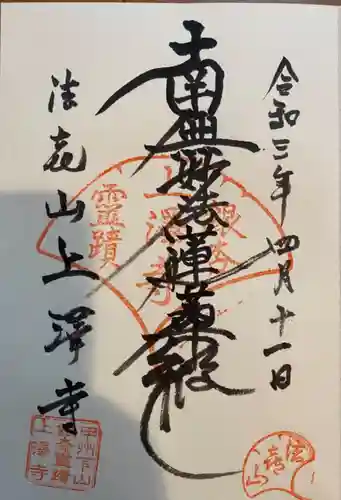 令和三年四月十一日
南無妙法蓮華経
法喜山上澤寺
霊蹟
上澤寺
甲州下山
上澤寺
法喜山